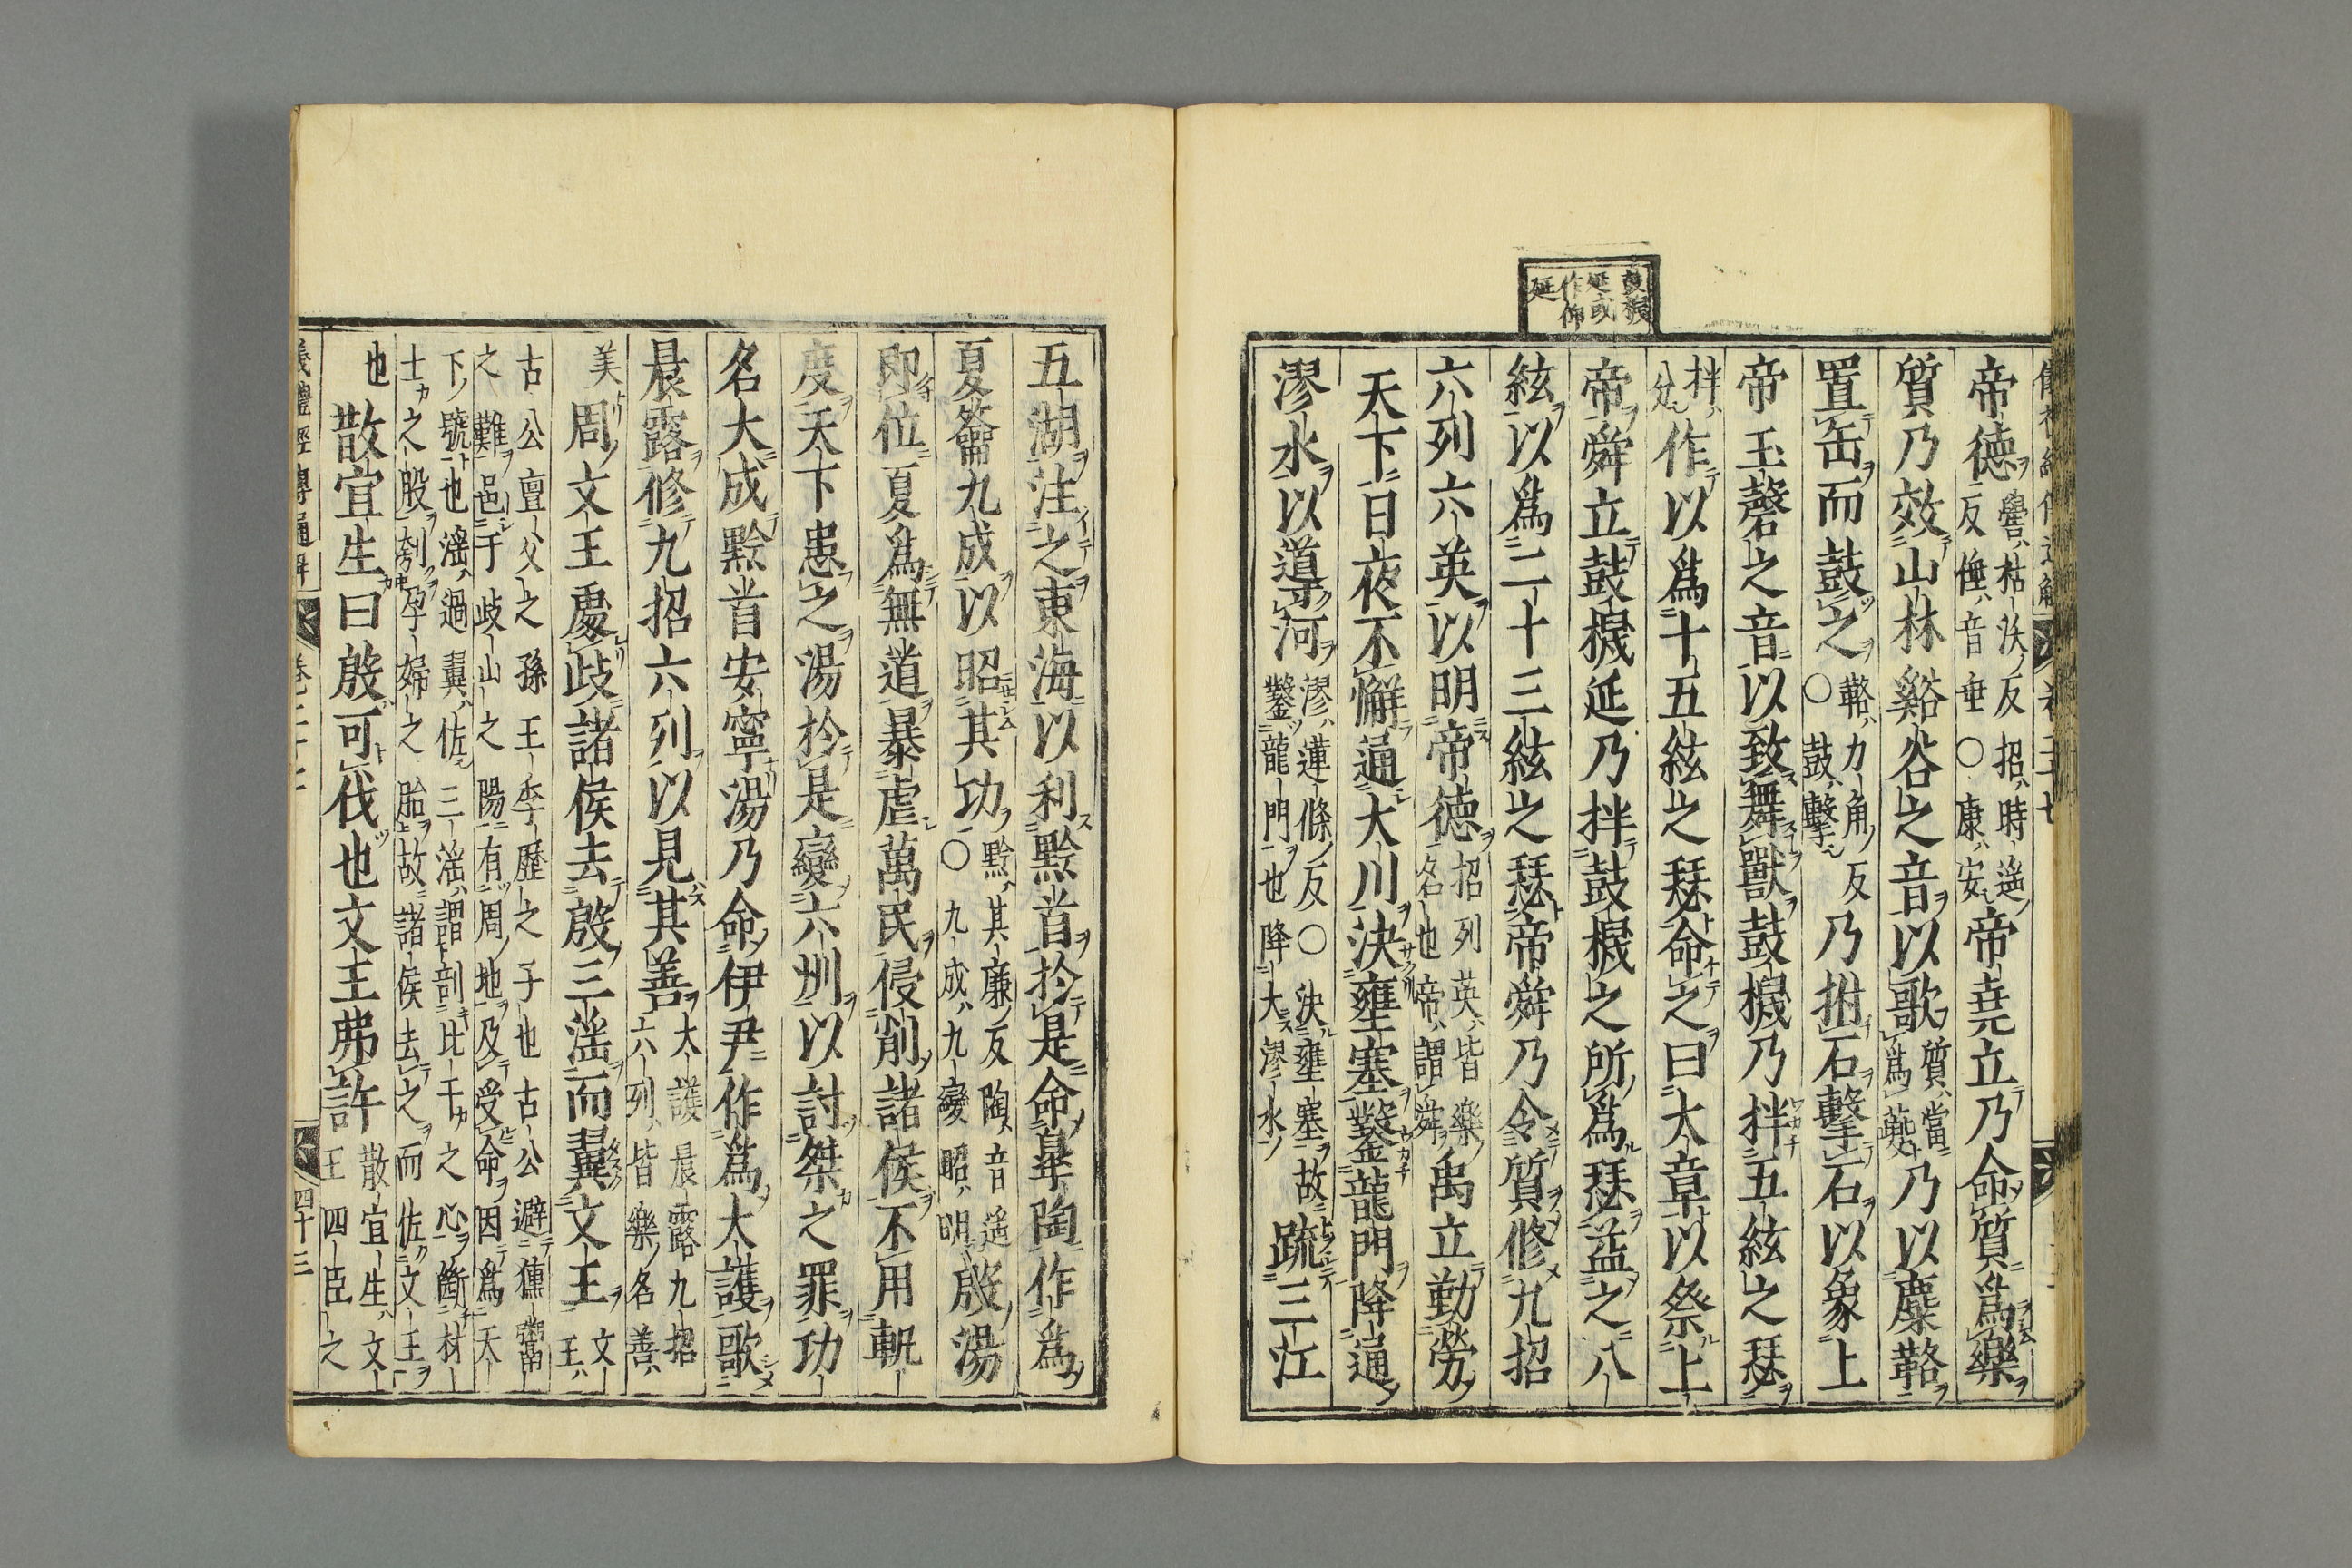 鼓橷
延或
作仰
延
帝德嚳枯沃反招時遙
反倕音垂○康安帝堯立乃命質爲樂
質乃效山林谿谷之音以歌質當
爲夔乃以麋䩭
置缶而鼓之䩭力角反
○鼓擊乃拊石擊石以象上
帝玉磬之音以致舞獸鼓橷乃拌五絃之瑟
拌
分作以爲十五絃之瑟命之曰大章以祭上
帝舜立鼓橷延乃拌鼓橷之所爲瑟益之八
絃以爲二十三絃之瑟帝舜乃令質修九招
六列六英以明帝德招列英皆樂
名也帝謂舜禹立勤勞
天下日夜不懈通大川決壅塞鑿龍門降通
漻水以道河漻蓮條反○決壅塞故
鑿龍門也降大漻水疏三江
五湖注之東海以利黔首於是命皐陶作爲
夏籥九成以昭其功黔其廉反陶音遙
○九成九變昭明殷湯
即位夏爲無道暴虐萬民侵削諸侯不用軏
度天下患之湯於是率六州以討桀之罪功
名大成黔首安寧湯乃命伊尹作爲大護歌
晨露修九招六列以見其善大護晨露九招
六列皆樂名善
美周文王處岐諸侯去殷三淫而翼文王文
王
古公亶父之孫王季歷之子也古公避獯鬻
之難邑于岐山之陽有周地及受命因爲天
下號也淫過翼佐三淫謂剖比干之心斷材
士之股刳孕婦之胎故諸侯去之而佐文王
也散宜生曰殷可伐也文王弗許散宜生文
王四臣之
儀禮經傳通解 卷二十七 四十三